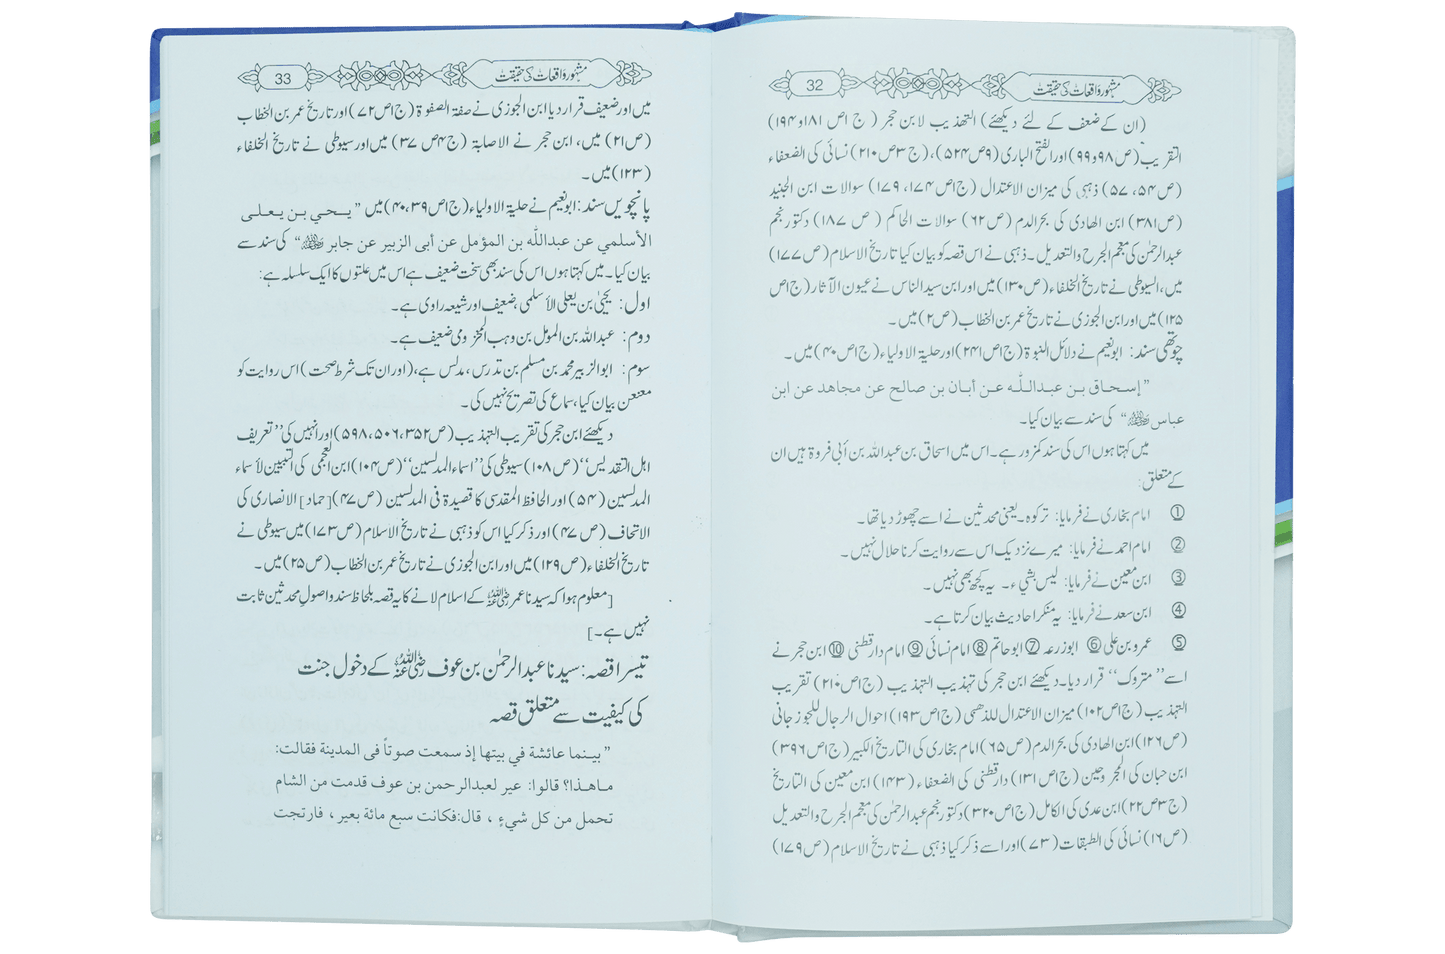 مشہور واقعات کی حقیقت
32
(ان کے ضعف کے لئے دیکھئے) التھذیب لابن حجر (ج اص ۱۸۱و۱۹۴)
التقریب (ص۹۸و۹۹) اورالفتح الباری (۹ص۵۲۴)، (ج۳ص۲۱۰) نسائی کی الضعفاء
(ص۵۷،۵۴) ذہبی کی میزان الاعتدال (ج اص۱۷۹،۱۷۴) سوالات ابن الجنید
(ص۳۸۱) ابن الھادی کی بحرالدم (ص۶۲) سوالات الحاکم (ص۱۸۷) دکتورنجم
عبدالرحمٰن کی معجم الجرح والتعدیل۔ ذہبی نے اس قصہ کو بیان کیا تاریخ الاسلام (ص۱۷۷)
میں،السیوطی نے تاریخ الخلفاء (ص۱۳۰) میں اورابن سیدالناس نے عیون الآثار (ج اص
۱۲۵) میں اورابن الجوزی نے تاریخ عمر بن الخطاب (ص۲) میں۔
چوتھی سند: ابونعیم نے دلائل النبوۃ (ج اص۲۴۱) اورحلیۃ الاولیاء (ج اص۴۰) میں۔
”إسحاق بن عبداللّٰہ عن أبان بن صالح عن مجاهد عن ابن
عباس ؓ“ کی سند سے بیان کیا۔
میں کہتا ہوں اس کی سند کمزور ہے۔اس میں اسحاق بن عبداللہ بن أبی فروۃ ہیں ان
کے متعلق:
① امام بخاری نے فرمایا: ترکوہ۔یعنی محدثین نے اسے چھوڑ دیا تھا۔
② امام احمد نے فرمایا: میرے نزدیک اس سے روایت کرنا حلال نہیں۔
③ ابن معین نے فرمایا: لیس بشیء۔ یہ کچھ بھی نہیں۔
④ ابن سعد نے فرمایا: یہ منکر احادیث بیان کرتا ہے۔
⑤ عمرو بن علی ⑥ ابوزرعہ ⑦ ابوحاتم ⑧ امام نسائی ⑨ امام دارقطنی ⑩ ابن حجر نے
اسے ”متروک“ قرار دیا۔دیکھئے ابن حجر کی تہذیب التہذیب (ج اص۲۱۰) تقریب
التہذیب (ج اص۱۰۲) میزان الاعتدال للذھبی (ج اص۱۹۳) احوال الرجال للجوزجانی
(ص۱۲۶) ابن الھادی کی بحرالدم (ص۶۵) امام بخاری کی التاریخ الکبیر (ج اص۳۹۶)
ابن حبان کی المجروحین (ج اص۱۳۱) دارقطنی کی الضعفاء (۱۴۳) ابن معین کی التاریخ
(ج۳ص۲۲) ابن عدی کی الکامل (ج اص۳۲۰) دکتورنجم عبدالرحمٰن کی معجم الجرح والتعدیل
(ص۱۶) نسائی کی الطبقات (۷۳) اور اسے ذکر کیا ذہبی نے تاریخ الاسلام (ص۱۷۹)
مشہور واقعات کی حقیقت
33
میں اور ضعیف قرار دیا ابن الجوزی نے صفۃ الصفوۃ (ج اص۷۲) اورتاریخ عمر بن الخطاب
(ص۲۱) میں، ابن حجر نے الاصابۃ (ج۴ص۳۷) میں اورسیوطی نے تاریخ الخلفاء
(۱۲۳) میں۔
پانچویں سند: ابونعیم نے حلیۃ الاولیاء (ج اص۴۰،۳۹) میں ”یحي بن یعلی
الأسلمي عن عبداللّٰہ بن المؤمل عن أبی الزبیر عن جابر ؓ“ کی سند سے
بیان کیا۔میں کہتا ہوں اس کی سند بھی سخت ضعیف ہے اس میں علتوں کا ایک سلسلہ ہے:
اول: یحیٰی بن یعلی الأسلمی،ضعیف اور شیعہ راوی ہے۔
دوم: عبداللہ بن المومل بن وہب المخزومی ضعیف ہے۔
سوم: ابوالزبیرمحمد بن مسلم بن تدرس، مدلس ہے،(اوران تک شرط صحت) اس روایت کو
معنعن بیان کیا،سماع کی تصریح نہیں کی۔
دیکھئے ابن حجر کی تقریب التہذیب (ص۵۹۸،۵۰۶،۳۵۲) اور انہیں کی ”تعریف
اہل التقدیس“ (ص۱۰۸) سیوطی کی ”اسماء المدلسین“ (ص۱۰۴) ابن العجمی کی التبیین لأسماء
المدلسین (۵۴) اور الحافظ المقدسی کا قصیدۃ فی المدلسین (ص۴۷) [حماد] الانصاری کی
الاتحاف (ص۴۷) اور ذکر کیا اس کو ذہبی نے تاریخ الاسلام (ص۱۷۳) میں سیوطی نے
تاریخ الخلفاء (ص۱۲۹) میں اورابن الجوزی نے تاریخ عمر بن الخطاب (ص۲۵) میں۔
[معلوم ہوا کہ سیدنا عمر ؓ کے اسلام لانے کا یہ قصہ بلحاظ سند واصولِ محدثین ثابت
نہیں ہے۔]
تیسرا قصہ: سیدنا عبدالرحمٰن بن عوف ؓ کے دخول جنت
کی کیفیت سے متعلق قصہ
”بینما عائشة في بیتها إذ سمعت صوتاً فی المدینة فقالت:
ماهذا؟ قالوا: عیر لعبدالرحمن بن عوف قدمت من الشام
تحمل من کل شيءٍ ، قال:فکانت سبع مائة بعیر ، فارتجت